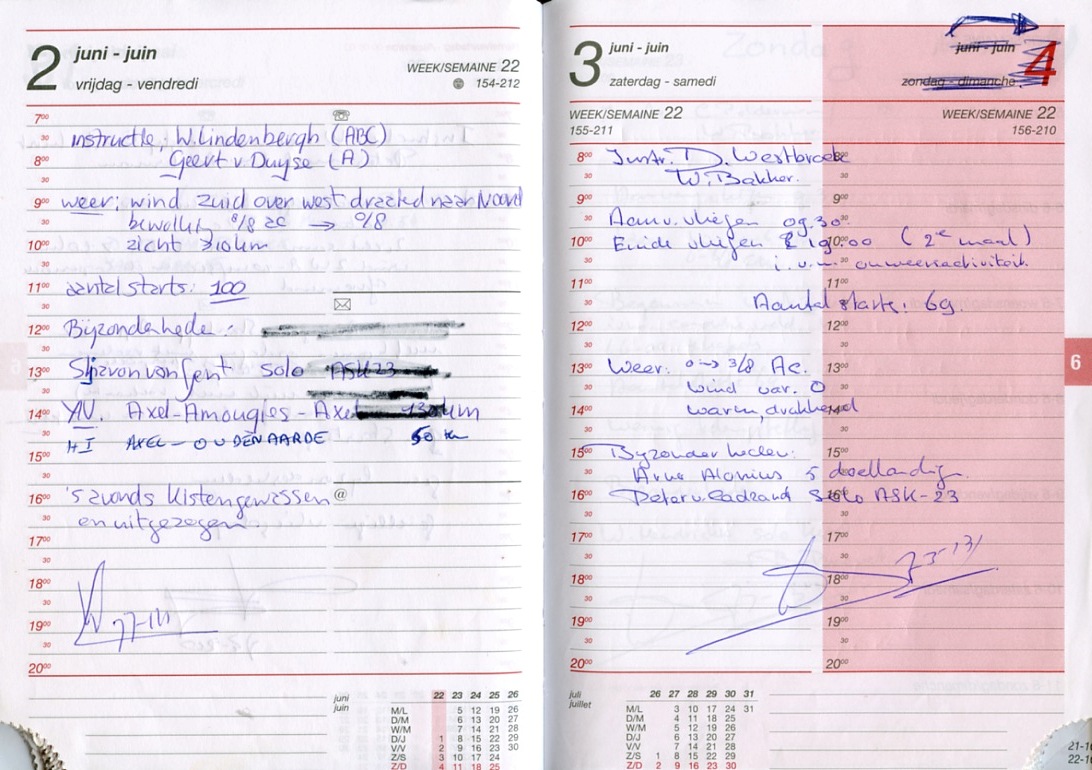 2 juni - juin
vrijdag - vendredi
WEEK/SEMAINE 22
154-212
7⁰⁰
30 instructie: W. Lindenbergh (ABC)
8⁰⁰ Geert v Duyse (A)
30
9⁰⁰ weer: wind zuid over west draaed naar Noord
30 bewolkt 8/8 sc → 0/8
10⁰⁰ zicht >10km
30
11⁰⁰ aantal starts: 100
30
12⁰⁰ Bijzonderhede:
30
13⁰⁰ Sjp van van Gent solo ASK23
30
14⁰⁰ XIV. Axel-Amougies-Axel 130km
30 HI AXEL - OUDENAARDE 50 km
15⁰⁰
30
16⁰⁰ 's avonds kisten gewassen @
30 en uitgezogen.
17⁰⁰
30
18⁰⁰
30
19⁰⁰
30
20⁰⁰
juni
juin
22 23 24 25 26
M/L 5 12 19 26
D/M 6 13 20 27
W/M 7 14 21 28
D/J 1 8 15 22 29
V/V 2 9 16 23 30
Z/S 3 10 17 24
Z/D 4 11 18 25
3 juni - juin
zaterdag - samedi
juni - juin
zondag - dimanche
4
WEEK/SEMAINE 22
155-211
WEEK/SEMAINE 22
156-210
8⁰⁰ Instr. D. Westbroek 8⁰⁰
30 W. Bakker. 30
9⁰⁰ 9⁰⁰
30 Aanv. vliegen 09.30. 30
10⁰⁰ Einde vliegen 19.00 (2e maal) 10⁰⁰
30 i.v.m. onweersactiviteit. 30
11⁰⁰ 11⁰⁰
30 Aantal starts: 69. 30
12⁰⁰ 12⁰⁰
30 30
13⁰⁰ Weer: 0 → 3/8 Ac. 13⁰⁰
30 wind var. 0 30
14⁰⁰ warm, drukkend 14⁰⁰
30 30
15⁰⁰ Byzonderheden: 15⁰⁰
30 Arne Alonius 5 doellandingen 30
16⁰⁰ Peter v. Cadzand Solo ASK-23 16⁰⁰
30 30
17⁰⁰ 17⁰⁰
30 30
18⁰⁰ 18⁰⁰
30 30
19⁰⁰ 19⁰⁰
30 30
20⁰⁰ 20⁰⁰
6
juli
juillet
26 27 28 29 30 31
M/L 3 10 17 24 31
D/M 4 11 18 25
W/M 5 12 19 26
D/J 6 13 20 27
V/V 7 14 21 28
Z/S 1 8 15 22 29
Z/D 2 9 16 23 30